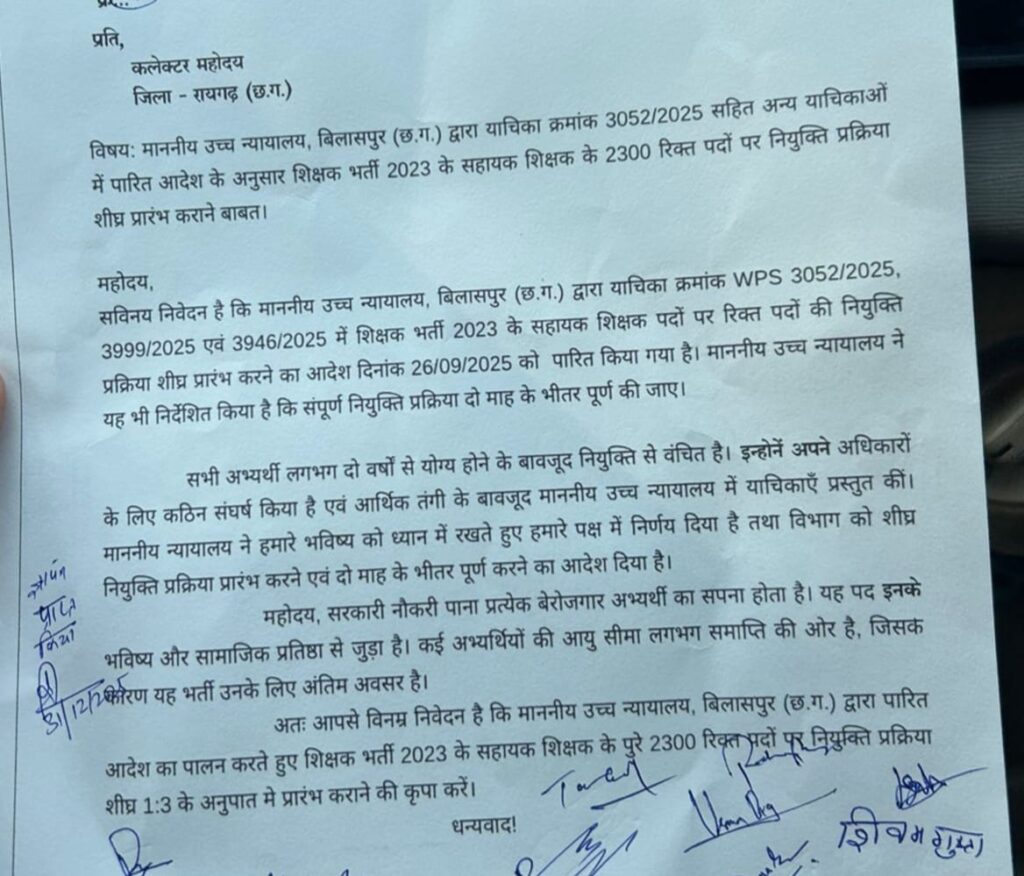 प्रति,
कलेक्टर महोदय
जिला - रायगढ़ (छ.ग.)
विषय: माननीय उच्च न्यायालय, बिलासपुर (छ.ग.) द्वारा याचिका क्रमांक 3052/2025 सहित अन्य याचिकाओं
में पारित आदेश के अनुसार शिक्षक भर्ती 2023 के सहायक शिक्षक के 2300 रिक्त पदों पर नियुक्ति प्रक्रिया
शीघ्र प्रारंभ कराने बाबत।
महोदय,
सविनय निवेदन है कि माननीय उच्च न्यायालय, बिलासपुर (छ.ग.) द्वारा याचिका क्रमांक WPS 3052/2025,
3999/2025 एवं 3946/2025 में शिक्षक भर्ती 2023 के सहायक शिक्षक पदों पर रिक्त पदों की नियुक्ति
प्रक्रिया शीघ्र प्रारंभ करने का आदेश दिनांक 26/09/2025 को पारित किया गया है। माननीय उच्च न्यायालय ने
यह भी निर्देशित किया है कि संपूर्ण नियुक्ति प्रक्रिया दो माह के भीतर पूर्ण की जाए।
सभी अभ्यर्थी लगभग दो वर्षों से योग्य होने के बावजूद नियुक्ति से वंचित है। इन्होनें अपने अधिकारों
के लिए कठिन संघर्ष किया है एवं आर्थिक तंगी के बावजूद माननीय उच्च न्यायालय में याचिकाएँ प्रस्तुत कीं।
माननीय न्यायालय ने हमारे भविष्य को ध्यान में रखते हुए हमारे पक्ष में निर्णय दिया है तथा विभाग को शीघ्र
नियुक्ति प्रक्रिया प्रारंभ करने एवं दो माह के भीतर पूर्ण करने का आदेश दिया है।
महोदय, सरकारी नौकरी पाना प्रत्येक बेरोजगार अभ्यर्थी का सपना होता है। यह पद इनके
भविष्य और सामाजिक प्रतिष्ठा से जुड़ा है। कई अभ्यर्थियों की आयु सीमा लगभग समाप्ति की ओर है, जिसके
कारण यह भर्ती उनके लिए अंतिम अवसर है।
अतः आपसे विनम्र निवेदन है कि माननीय उच्च न्यायालय, बिलासपुर (छ.ग.) द्वारा पारित
आदेश का पालन करते हुए शिक्षक भर्ती 2023 के सहायक शिक्षक के पुरे 2300 रिक्त पदों पर नियुक्ति प्रक्रिया
शीघ्र 1:3 के अनुपात मे प्रारंभ कराने की कृपा करें।
धन्यवाद!
प्राप्त
किया
31/12/25
शिवम गुप्ता